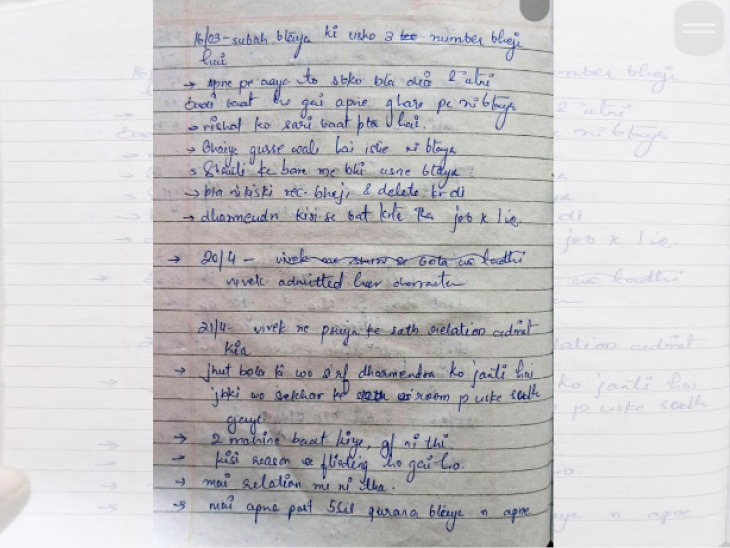 16/03 - subah btaya ki usko 3 number bheji
hai
→ apne pe aaya to sbko bta dia
baat ho gai apne ghare pe ni btaya
→ rishal ko sari baat pta hai.
→ Bhaiya gusse wale hai islie ni btaya
→ ke bare me bhi usne btaya
→ pta ni kiski rec. bheji & delete kr di
→ dharmendr kisi se bat krte tha job k lie.
→ 20/4 - vivek se bola
vivek admitted her character
21/4 - vivek ne pooja ke sath relation admit
kia
→ jhut bola ki wo srf dharmendra ko janti hai
jbki wo sekhar ke room p uske sath
gayi
→ 2 mahine baat kiye, gf ni thi
→ kisi reason se flirting ho gai ho.
→ mai relation me ni tha.
→ mai apna past 5 sal purana btaya n apne